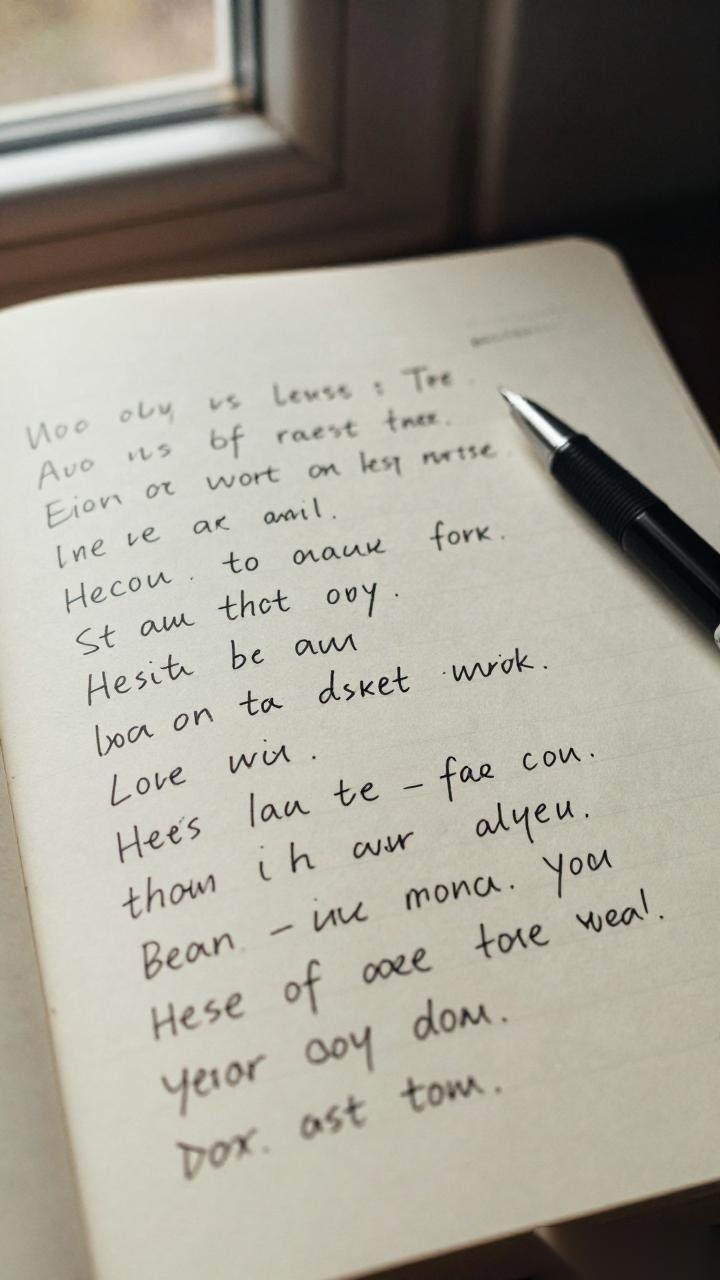 Noo oby vs leuse : Tee
Auo ns bf raest tnee.
Eion or wort on lesy nrtse.
Ine ve ar amil.
Hecou. to oraur fork.
St am thct ooy.
Hesith be am
boa on ta dsket wriok.
Love win.
Hee's lau te - fae cou.
thom ih aur alyeu.
Bean - inc mona. You
Hese of oore tore weal.
yeior ooy dom.
Dox. ast tom.